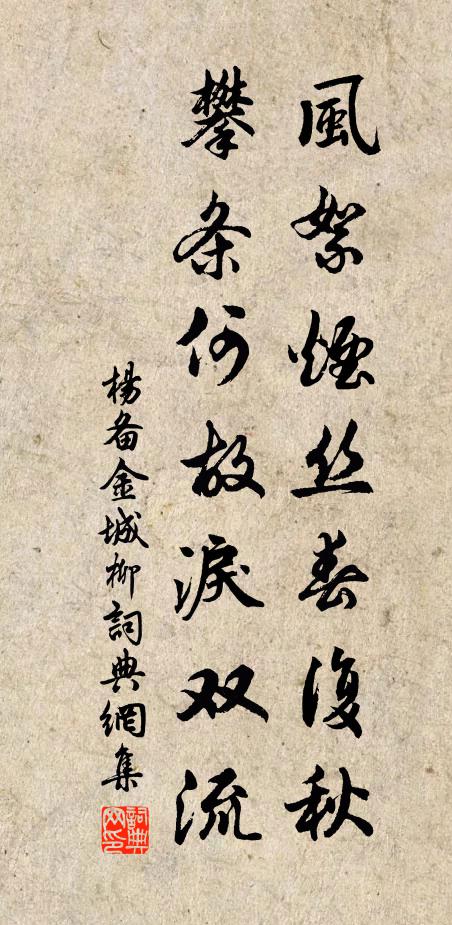 風絮煙丝春復秋
攀条何故淚双流
楊备金城柳詞典網集
詞典网印